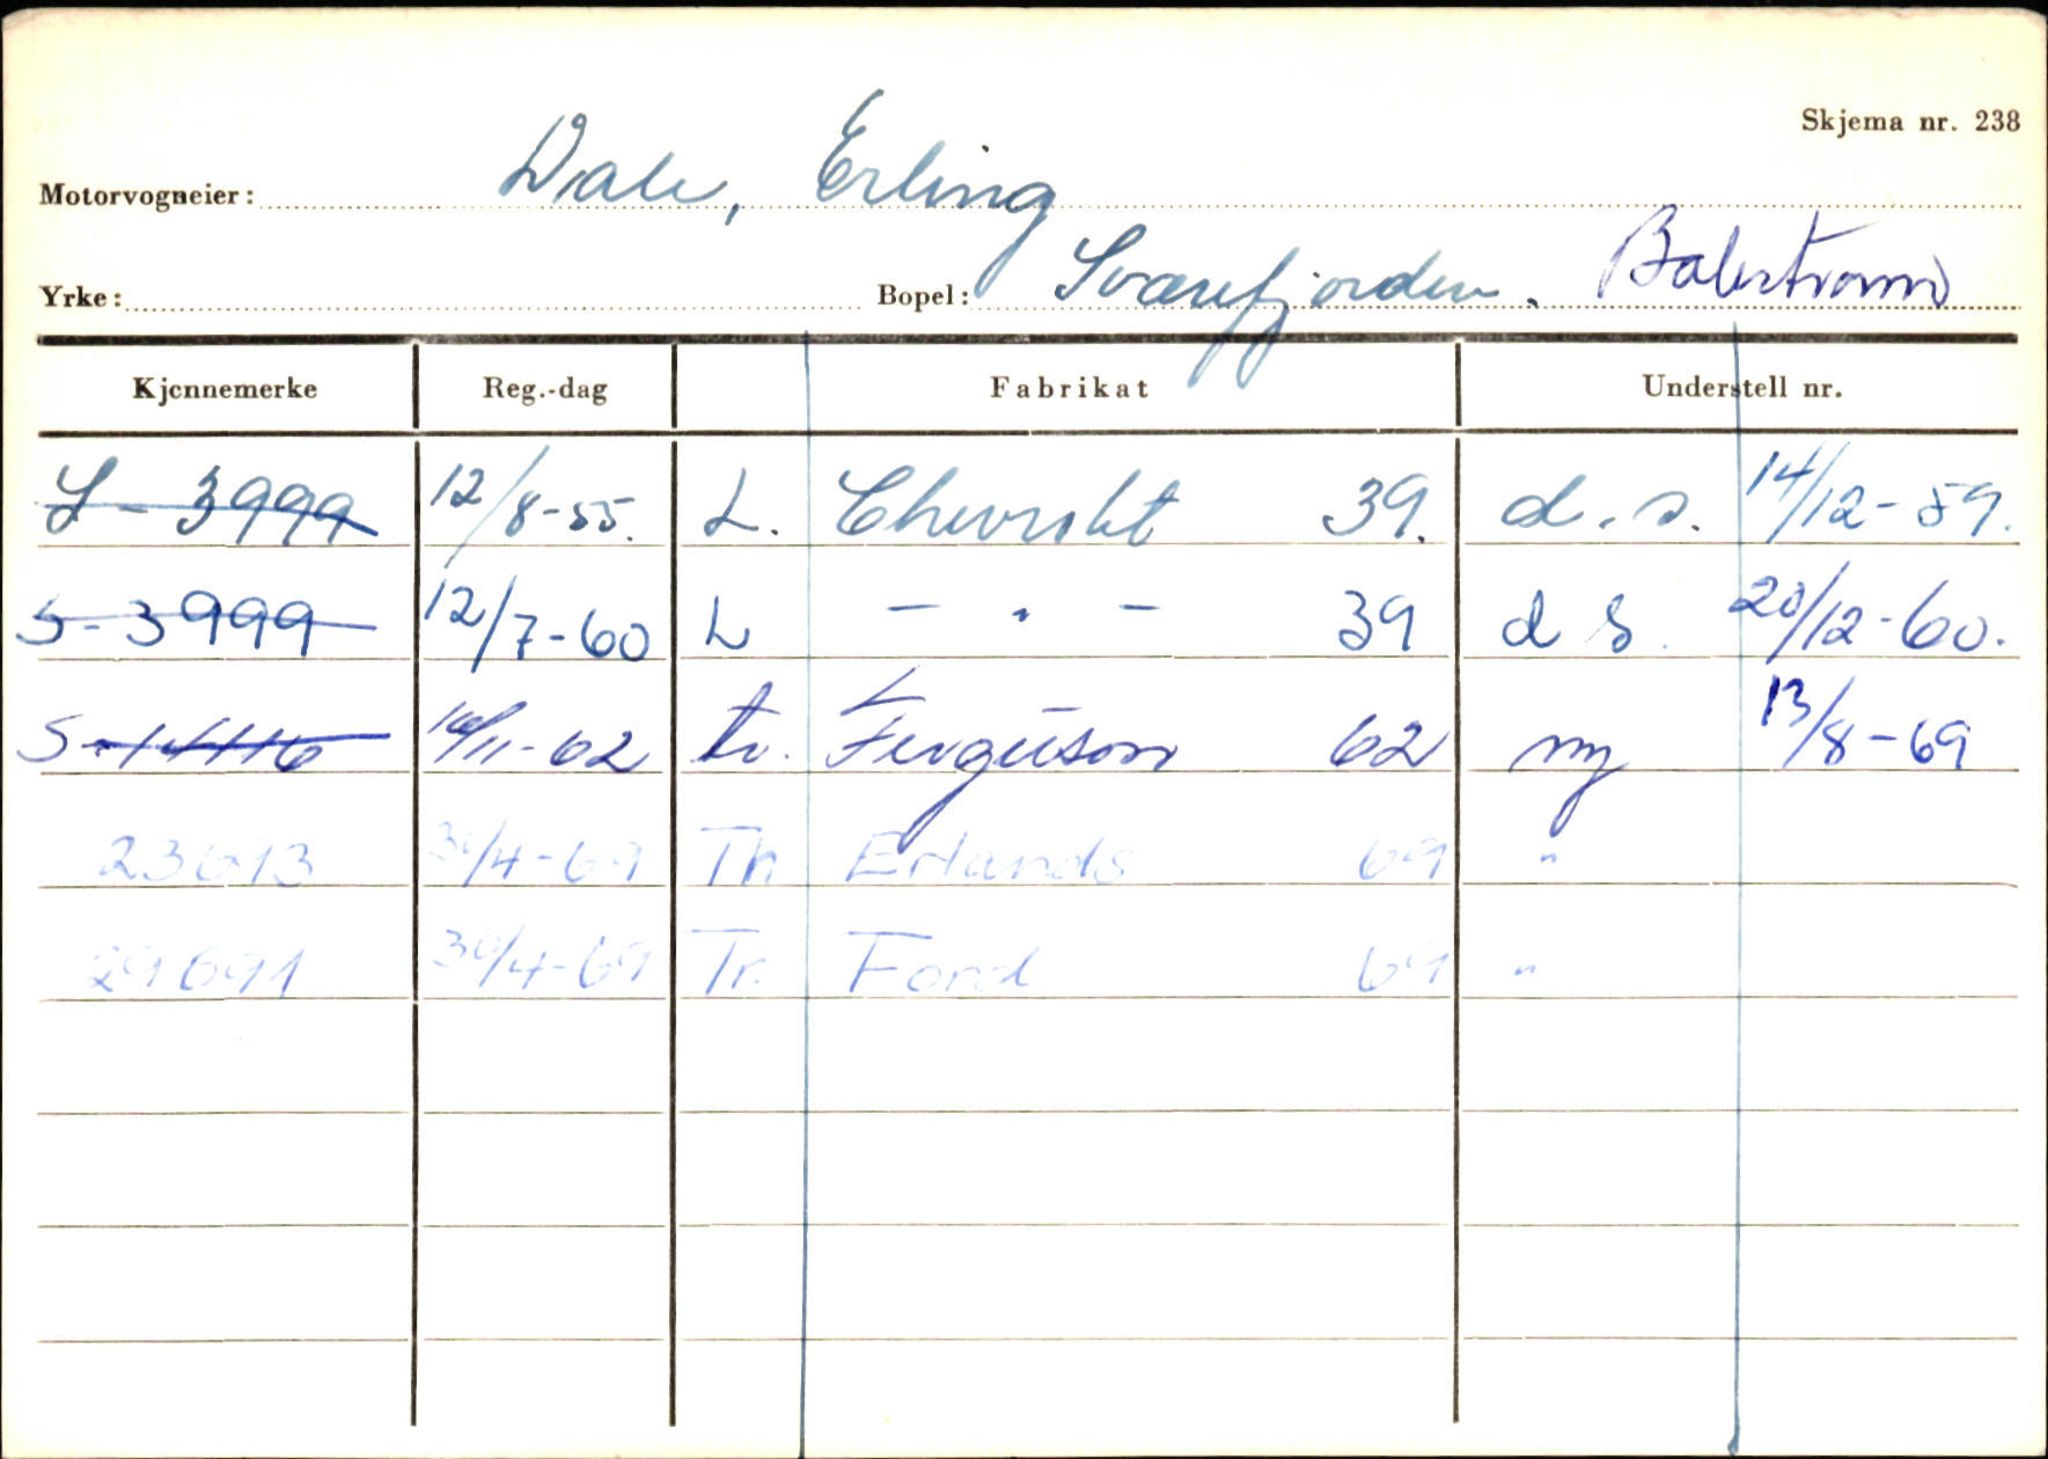 Skjema nr. 238
Motorvogneier: Dale, Erling
Yrke: Bopel: Sværefjorden. Balestrand
Kjennemerke Reg.-dag Fabrikat Understell nr.
S - 3999 12/8-55. L. Chevrolet 39. d.s. 14/12-59.
S-3999 12/7-60 L - " - 39 d s. 20/12-60.
S- 14/11-62 tr. Ferguson 62 ny 13/8-69
23693 30/4-69 Th Erlands 69 "
29691 30/4-69 Tr. Ford 69 "